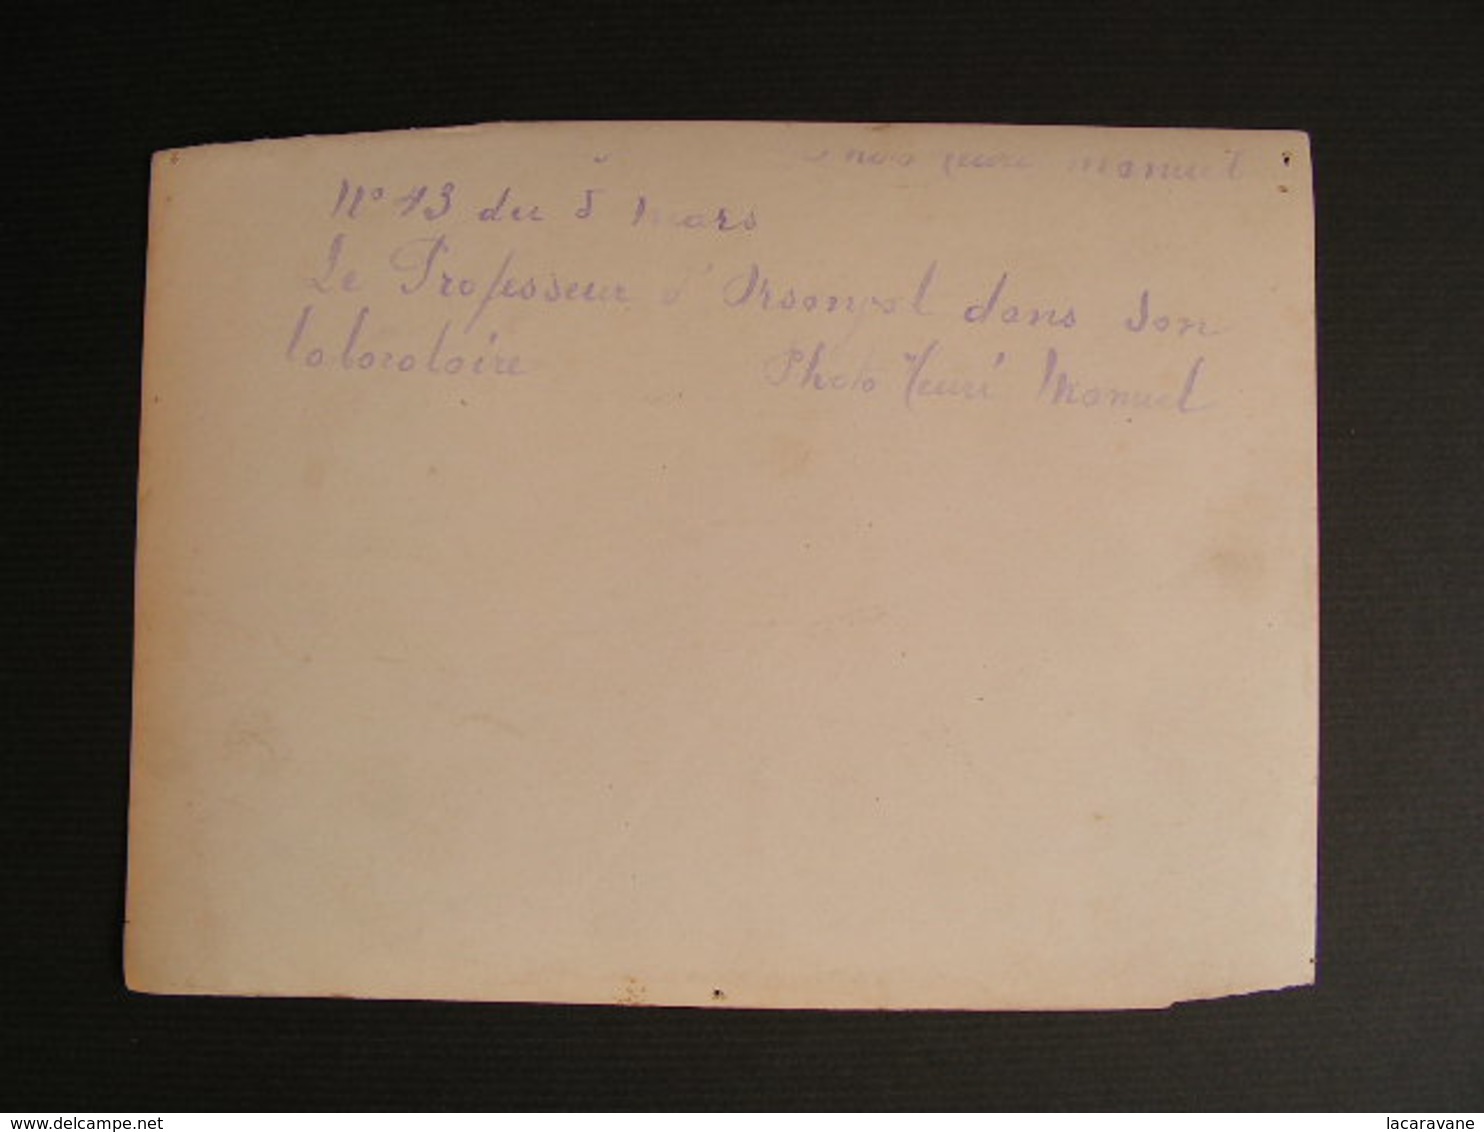 Photo Henri Manuel
N° 43 du 5 Mars
Le Professeur d'Arsonval dans son
laboratoire Photo Henri Manuel
delcampe.net
lacaravane